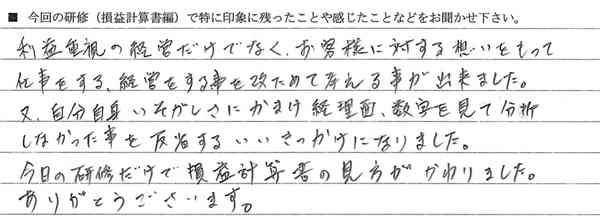 ■ 今回の研修（損益計算書編）で特に印象に残ったことや感じたことなどをお聞かせ下さい。
利益重視の経営だけでなく、お客様に対する想いをもって
仕事をする、経営をする事を改ためて考える事が出来ました。
又、自分自身いそがしさにかまけ経理面、数字を見て分析
しなかった事を反省するいいきっかけになりました。
今日の研修だけで損益計算書の見方がかわりました。
ありがとうございます。